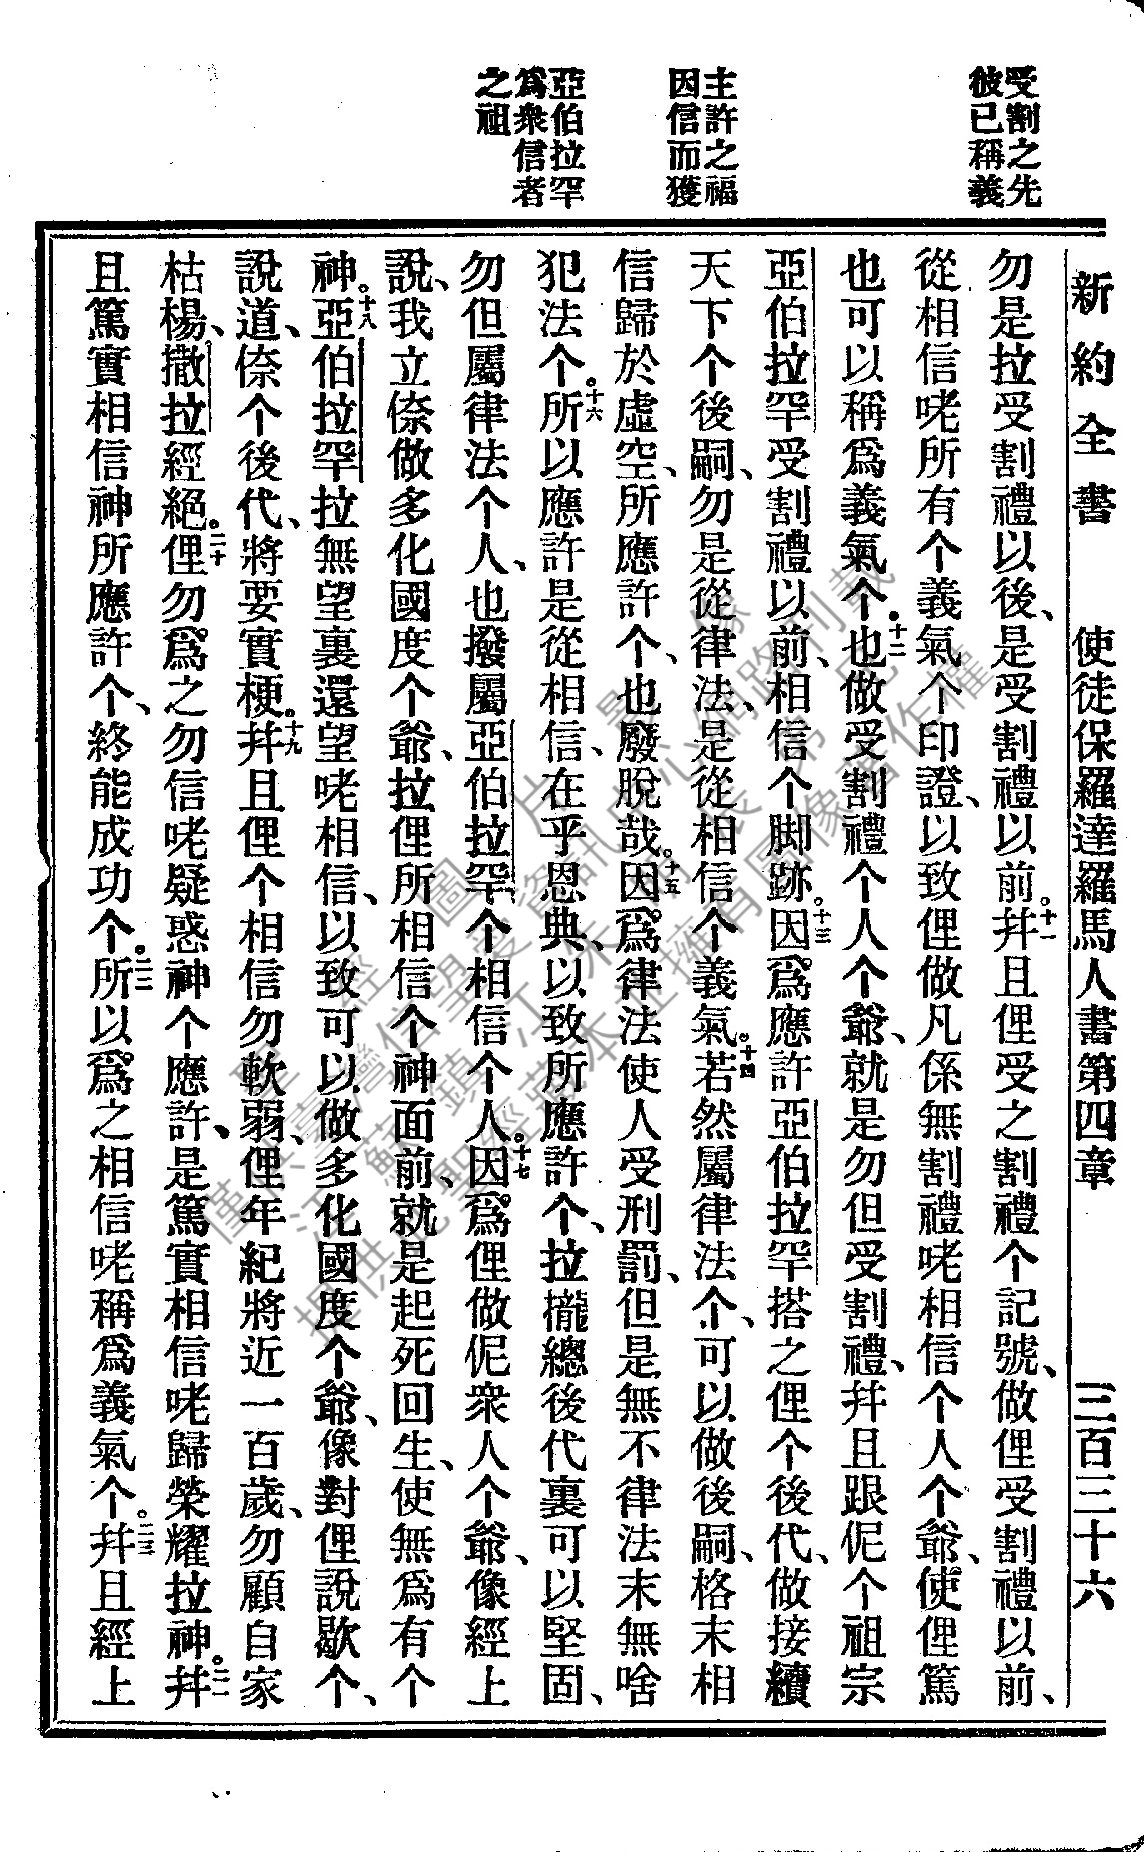 受割之先
彼已稱義
主許之福
因信而獲
亞伯拉罕
爲衆信者
之祖
新約全書 使徒保羅達羅馬人書第四章 三百三十六
勿是拉受割禮以後、是受割禮以前。十一幷且俚受之割禮个記號、做俚受割禮以前、
從相信咾所有个義氣个印證、以致俚做凡係無割禮咾相信个人个爺、使俚篤
也可以稱爲義氣个。十二也做受割禮个人个爺、就是勿但受割禮、幷且跟伲个祖宗
亞伯拉罕受割禮以前、相信个脚跡。十三因爲應許亞伯拉罕搭之俚个後代、做接續
天下个後嗣、勿是從律法、是從相信个義氣。十四若然屬律法个、可以做後嗣、格末相
信歸於虛空、所應許个、也廢脫哉。十五因爲律法使人受刑罰、但是無不律法末無啥
犯法个。十六所以應許是從相信、在乎恩典、以致所應許个、拉攏總後代裏可以堅固、
勿但屬律法个人、也撥屬亞伯拉罕个相信个人。十七因爲俚做伲衆人个爺、像經上
說、我立倷做多化國度个爺、拉俚所相信个神面前、就是起死回生、使無爲有个
神。十八亞伯拉罕拉無望裏還望咾相信、以致可以做多化國度个爺、像對俚說歇个、
說道、倷个後代、將要實梗。十九幷且俚个相信勿軟弱、俚年紀將近一百歲、勿顧自家
枯楊、撒拉經絕。二十俚勿爲之勿信咾疑惑神个應許、是篤實相信咾歸榮耀拉神。二一幷
且篤實相信神所應許个、終能成功个。二二所以爲之相信咾稱爲義氣个。二三幷且經上